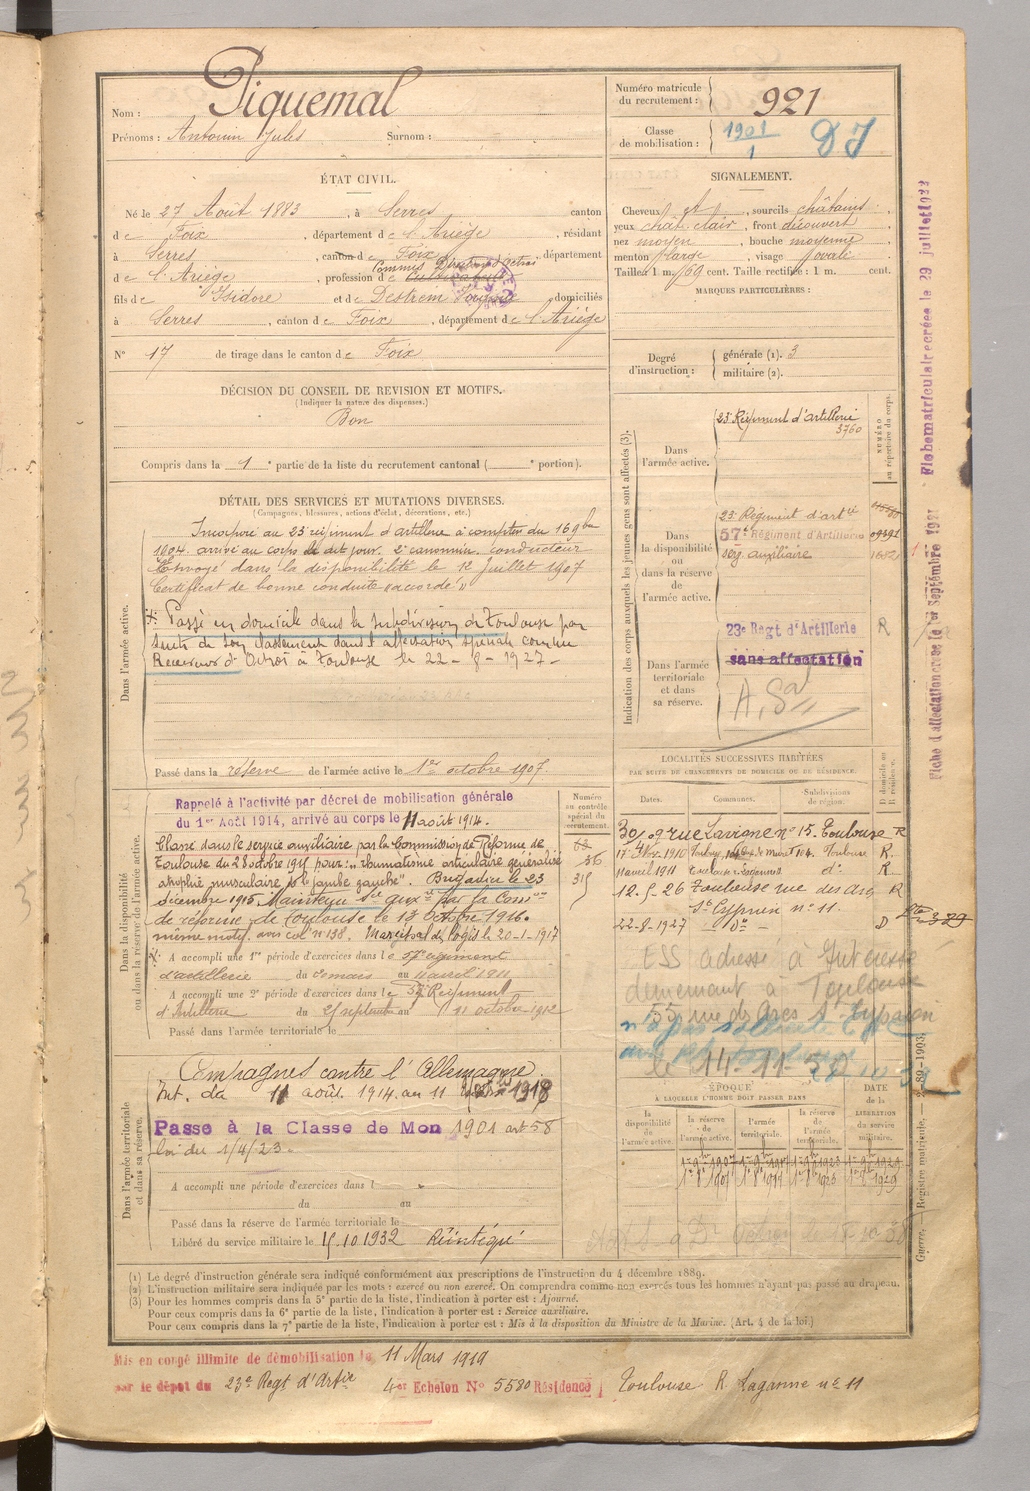 Nom : Piquemal
Prénoms : Antonin Jules Surnom :
Numéro matricule du recrutement : 921
Classe de mobilisation : 1901/1 DJ
ÉTAT CIVIL.
Né le 27 Août 1883, à Serres canton
de Foix, département de l'Ariège, résidant
à Serres, canton de Foix, département
Commis Direct d'octroi
de l'Ariège, profession de Cultivateur
fils de Isidore et de Destrem domiciliés
à Serres, canton de Foix, département de l'Ariège
N° 17 de tirage dans le canton de Foix
DÉCISION DU CONSEIL DE REVISION ET MOTIFS.
(Indiquer la nature des dispenses.)
Bon
Compris dans la 1e partie de la liste du recrutement cantonal ( e portion).
DÉTAIL DES SERVICES ET MUTATIONS DIVERSES.
(Campagnes, blessures, actions d'éclat, décorations, etc.)
Dans l'armée active.
Incorporé au 23e régiment d'artillerie à compter du 16 9bre
1904. arrivé au corps le dit jour. 2e canonnier conducteur
Envoyé dans la disponibilité le 12 Juillet 1907
Certificat de bonne conduite "accordé"
Passé en domicile dans la subdivision de Toulouse par
suite de son classement dans l'affectation spéciale comme
Receveur d' Octroi à Toulouse le 22-8-1927-
Passé dans la réserve de l'armée active le 1er octobre 1907.
Dans la disponibilité ou dans la réserve de l'armée active.
Rappelé à l'activité par décret de mobilisation générale
du 1er Août 1914, arrivé au corps le 11 août 1914.
Classé dans le service auxiliaire par la Commission de Réforme de
Toulouse du 28 octobre 1915 pour: "rhumatisme articulaire généralisé
atrophie musculaire de la jambe gauche". Brigadier le 23
décembre 1915 Maintenu Sce auxre par la Comon
de réforme de Toulouse le 13 Octobre 1916.
même motif. avis col. n° 138. Maréchal des logis le 20-1-1917
A accompli une 1re période d'exercices dans le 57e régiment
d'artillerie du mars au 11 avril 1911
A accompli une 2e période d'exercices dans le 57e Régiment
d'Artillerie du 25 septembre au 11 octobre 1912
Passé dans l'armée territoriale le
Numéro au contrôle spécial du recrutement.
62
56
315
Dans l'armée territoriale et dans sa réserve.
Campagnes contre l'Allemagne
Int. du 11 août 1914 au 11 1918
Passé à la Classe de Mon 1901 art 58
loi du 1/4/23.
A accompli une période d'exercices dans l
du au
Passé dans la réserve de l'armée territoriale le
Libéré du service militaire le 15.10.1932 Réintégré
SIGNALEMENT.
Cheveux et , sourcils châtains,
yeux chât clair, front découvert
nez moyen, bouche moyenne
menton large, visage ovale
Taille : 1 m. 69 cent. Taille rectifiée : 1 m. cent.
MARQUES PARTICULIÈRES :
Degré d'instruction : générale (1). 3
militaire (2).
Indication des corps auxquels les jeunes gens sont affectés (3).
NUMÉRO au répertoire du corps.
Dans l'armée active.
23e Régiment d'artillerie
3760
Dans la disponibilité ou dans la réserve de l'armée active.
23e Régiment d'artie
57e Régiment d'Artillerie
serv. auxiliaire
Dans l'armée territoriale et dans sa réserve.
23e Regt d'Artillerie R
sans affectation
LOCALITÉS SUCCESSIVES HABITÉES
PAR SUITE DU CHANGEMENTS DE DOMICILE OU DE RÉSIDENCE.
Dates. Communes. Subdivisions de région. D domicile ou R résidence.
rue Lavigne n° 15. Toulouse R
17 Nov. 1910 Toulouse R.
11 avril 1911 Toulouse d° R
12. 5. 26 Toulouse rue des Arcs R
St Cyprien n° 11.
22-8-1927 - D° - D
ESS adressé à Intéressé
demeurant à Toulouse
55 rue des Arcs St Cyprien
le 14-11-50
ÉPOQUE
À LAQUELLE L'HOMME DOIT PASSER DANS
la disponibilité de l'armée active.
la réserve de l'armée active.
l'armée territoriale.
la réserve de l'armée territoriale.
DATE de la LIBÉRATION du service militaire.
(1) Le degré d'instruction générale sera indiqué conformément aux prescriptions de l'instruction du 4 décembre 1889.
(2) L'instruction militaire sera indiquée par les mots : exercé ou non exercé. On comprendra comme non exercés tous les hommes n'ayant pas passé au drapeau.
(3) Pour les hommes compris dans la 5e partie de la liste, l'indication à porter est : Ajourné.
Pour ceux compris dans la 6e partie de la liste, l'indication à porter est : Service auxiliaire.
Pour ceux compris dans la 7e partie de la liste, l'indication à porter est : Mis à la disposition du Ministre de la Marine. (Art. 4 de la loi.)
Mis en congé illimité de démobilisation le 11 Mars 1919
par le dépôt du 23e Regt d'Artie 4er Echelon N° 5580 Résidence Toulouse R Laganne n° 11
Fiche matriculaire créée le 29 juillet 1922
Fiche d'affectation créée le 1er Septembre 1921
Guerre. — Registre matricule.